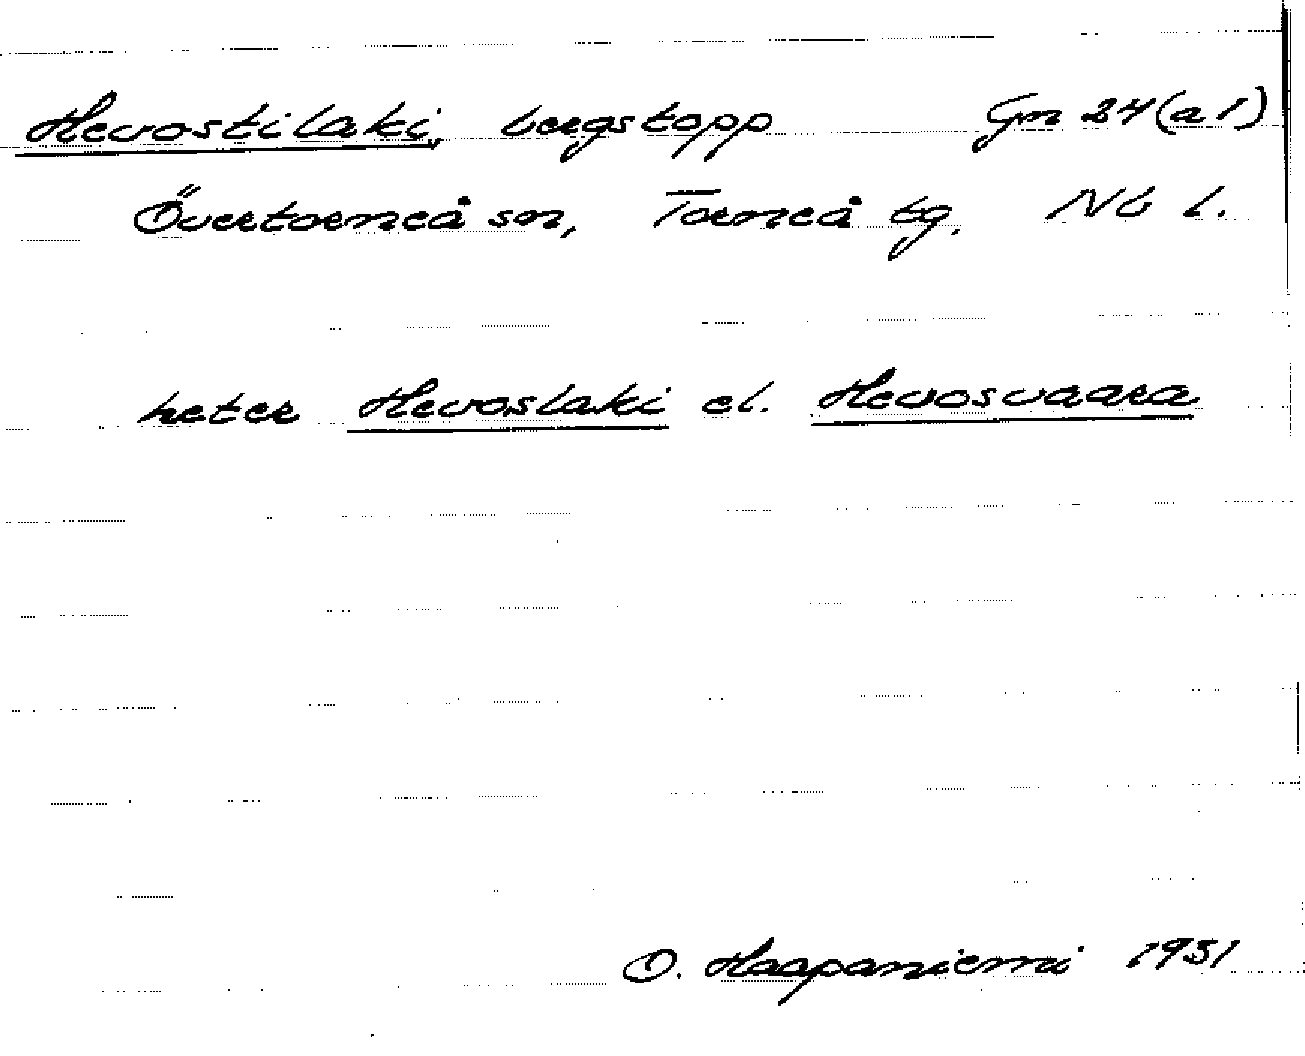 Hevostilaki, bergstopp Gm 24 (a 1)
Övertorneå sn, Torneå tg, Nb l.
heter Hevoslaki el. Hevosvaara
O. Haapaniemi 1931